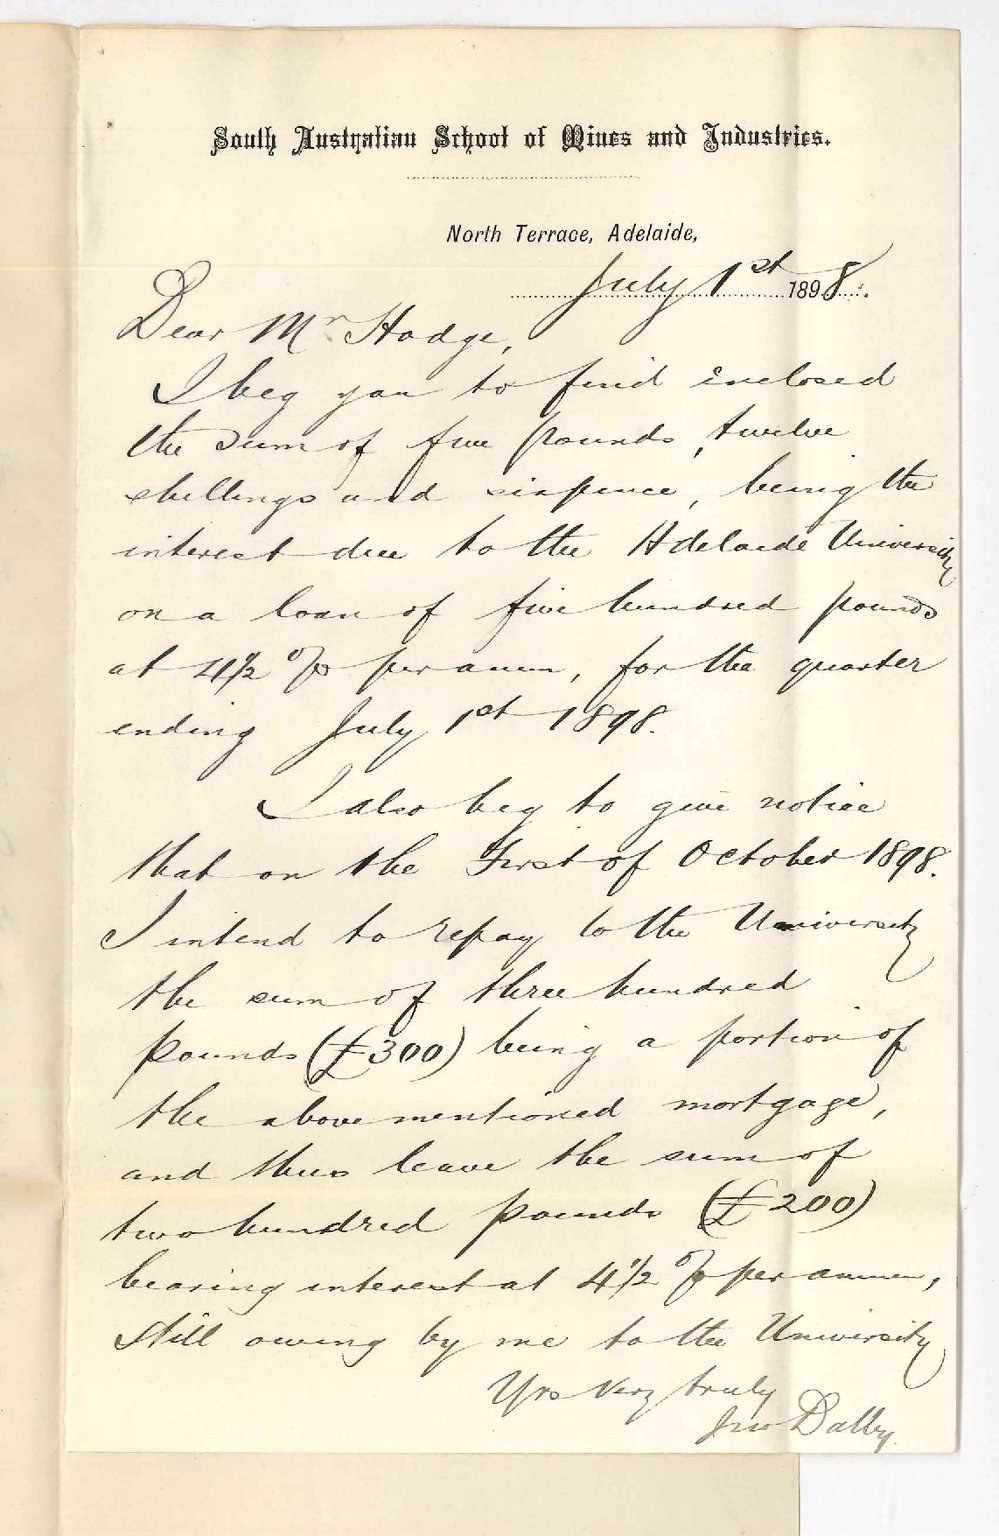 South Australian School of Mines and Industries.
North Terrace, Adelaide,
July 1st 1898.
Dear Mr Hodge,
I beg you to find inclosed
the sum of five pounds, twelve
shillings and sixpence, being the
interest due to the Adelaide University
on a loan of five hundred pounds
at 4½ % per anum, for the quarter
ending July 1st 1898.
I also beg to give notice
that on the First of October 1898.
I intend to repay to the University
the sum of three hundred
pounds (£300) being a portion of
the above mentioned mortgage,
and thus leave the sum of
two hundred pounds (£200)
bearing interest at 4½ % per annum,
still owing by me to the University
Yrs very truly
Jno Dalby.